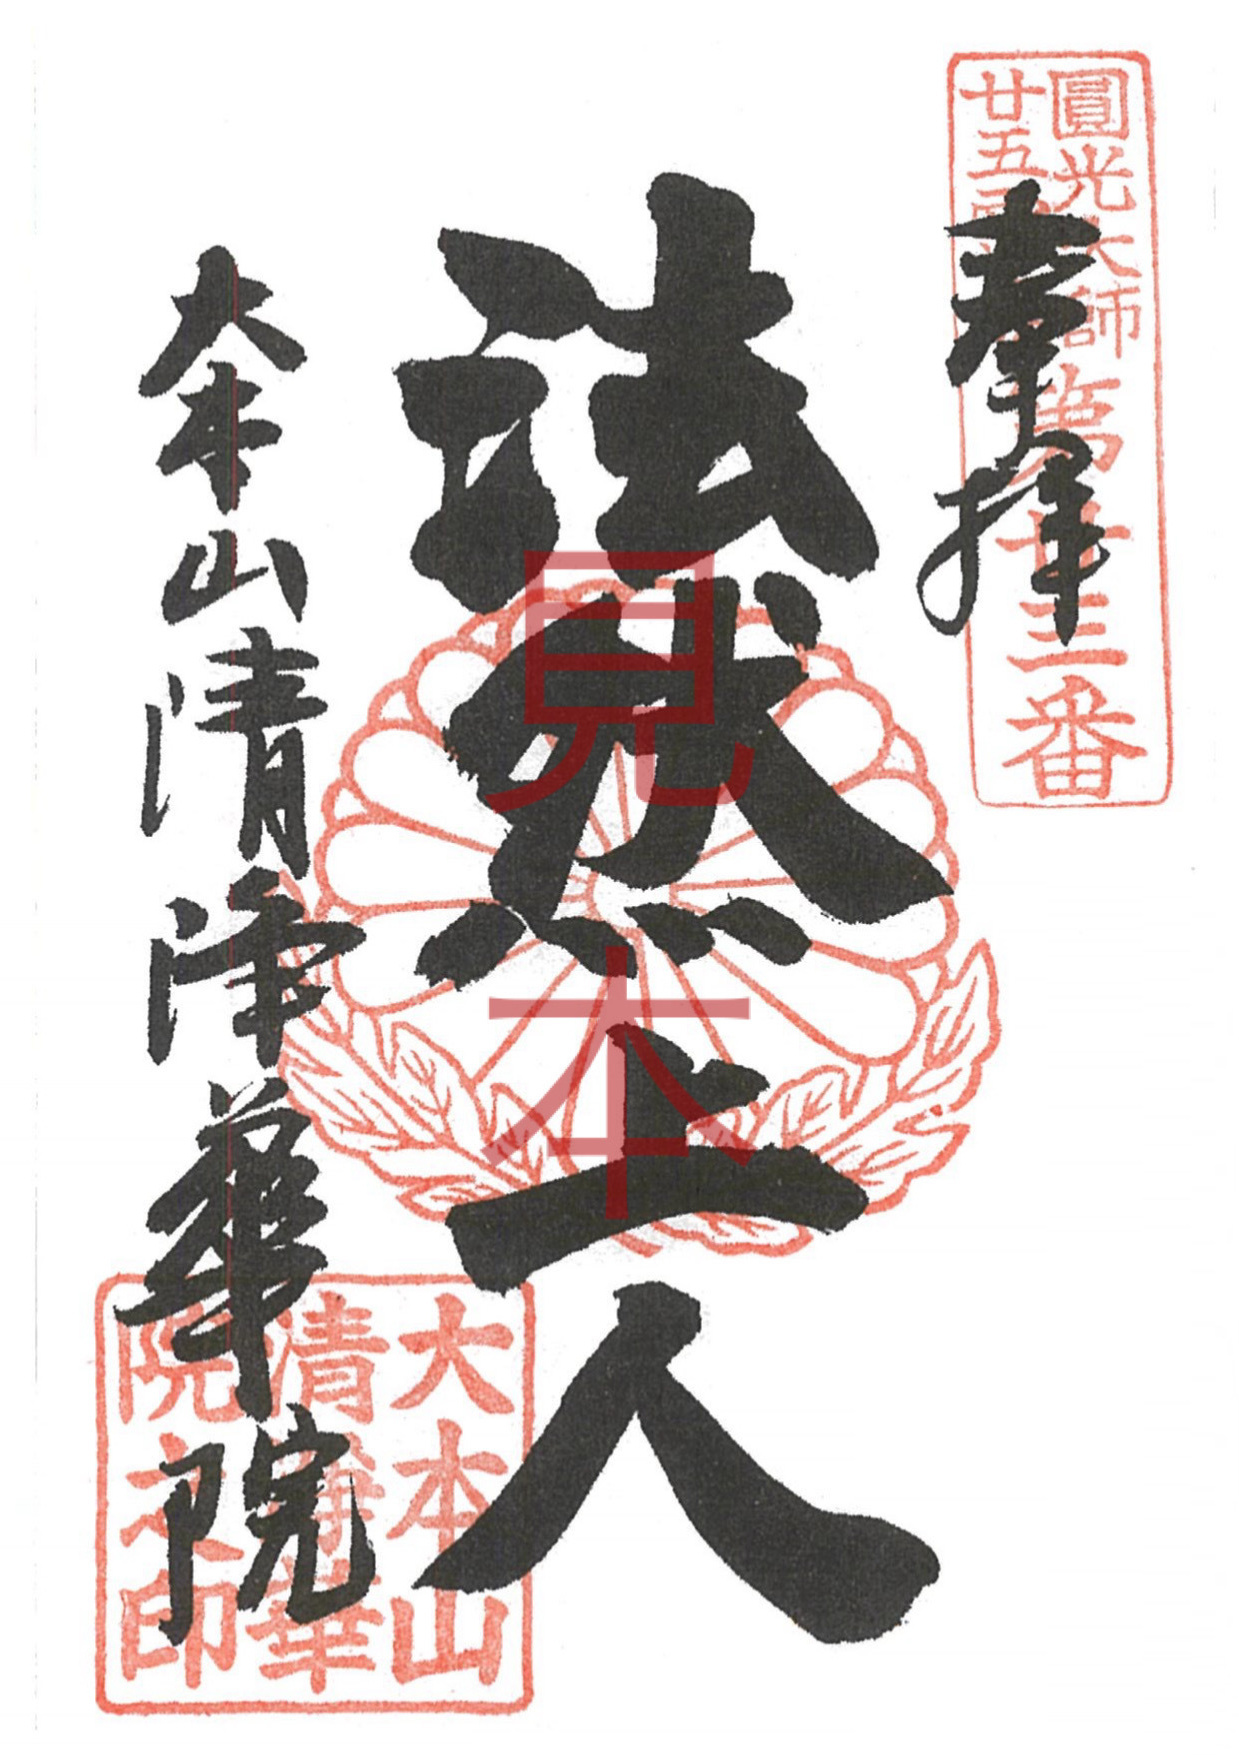 奉拝
圓光大師
廿五霊
第廿三番
法然上人
見本
大本山清浄華院
大本山
清浄華
院之印